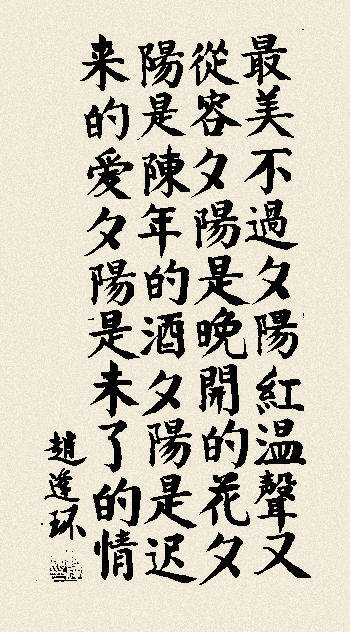 最美不過夕陽紅温聲又
從容夕陽是晚開的花夕
陽是陳年的酒夕陽是迟
来的愛夕陽是未了的情
趙逢环